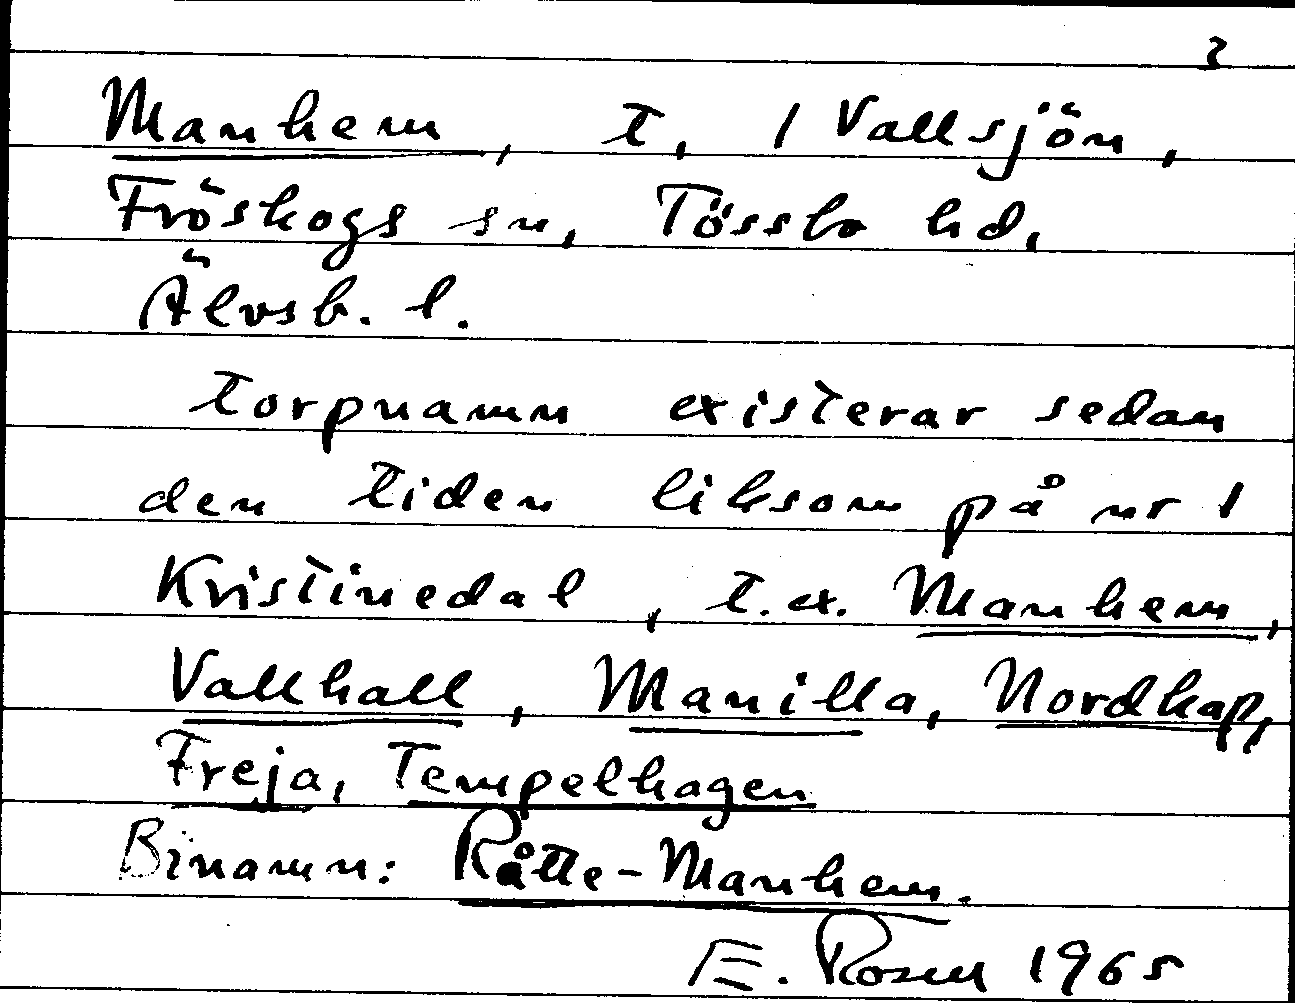 3
Manhem, t, 1 Vallsjön,
Fröskogs sn, Tössbo hd,
Älvsb. l.
torpnamn existerar sedan
den tiden liksom på nr 1
Kristinedal, t.ex. Manhem,
Vallhall, Manilla, Nordkap,
Freja, Tempelhagen
Binamn: Råtte-Manhem.
E. Rosell 1965